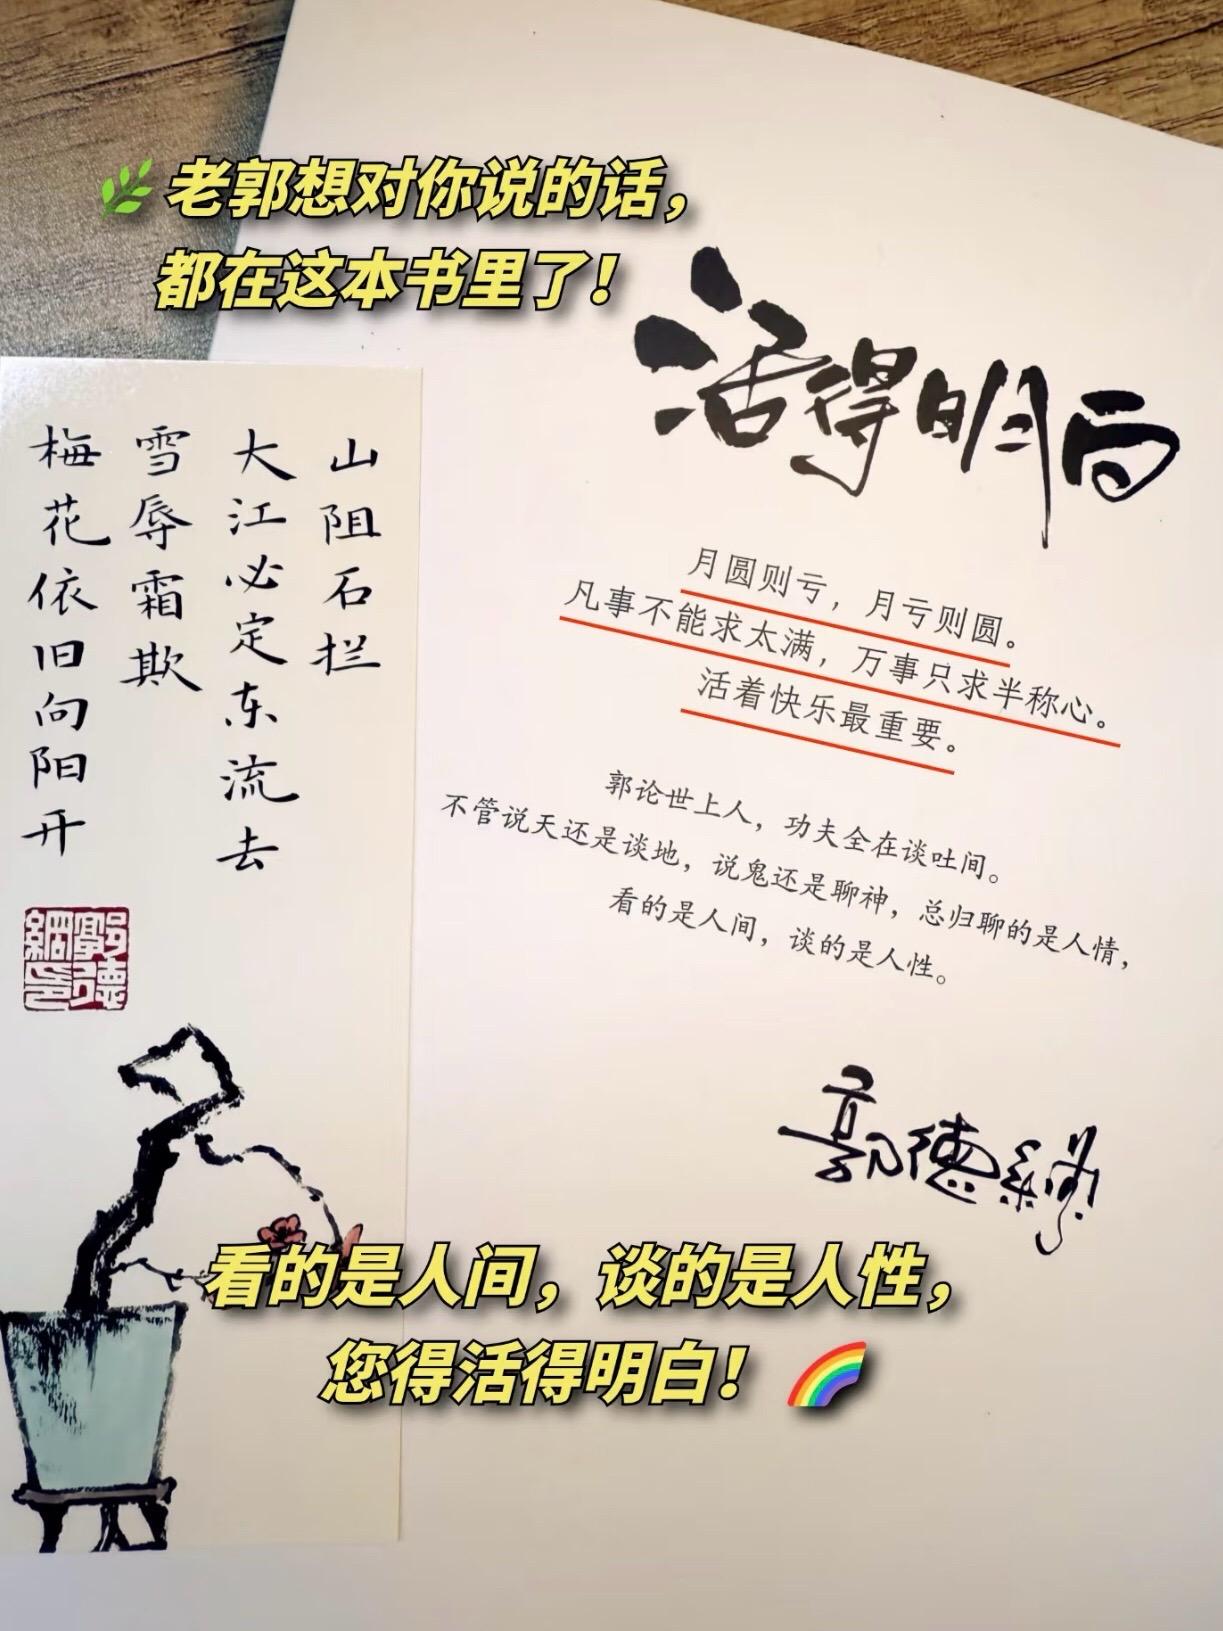 🌿老郭想对你说的话，
都在这本书里了！
活得明白
月圆则亏，月亏则圆。
凡事不能求太满，万事只求半称心。
活着快乐最重要。
郭论世上人，功夫全在谈吐间。
不管说天还是谈地，说鬼还是聊神，总归聊的是人情，
看的是人间，谈的是人性。
郭德纲
山阻石拦
大江必定东流去
雪辱霜欺
梅花依旧向阳开
郭德綱印
看的是人间，谈的是人性，
您得活得明白！🌈